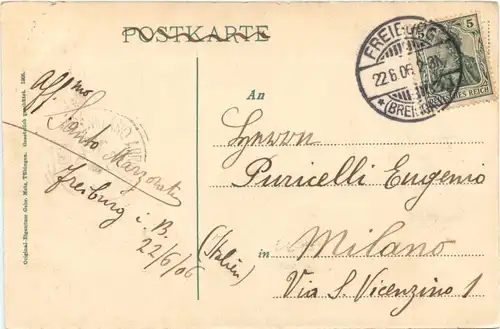 POSTKARTE
FREIBURG
22.6.06
*(BREISGAU)
5
DEUTSCHES REICH
Original-Eigentum Gebr. Metz, Tübingen. Gesetzlich geschützt. 1905.
Aff.mo
Santo Marzorati
Freiburg i. B.
22/6/06
An
Herrn
Puricelli Eugenio
in Milano
(Italien)
Via S. Vicenzino 1